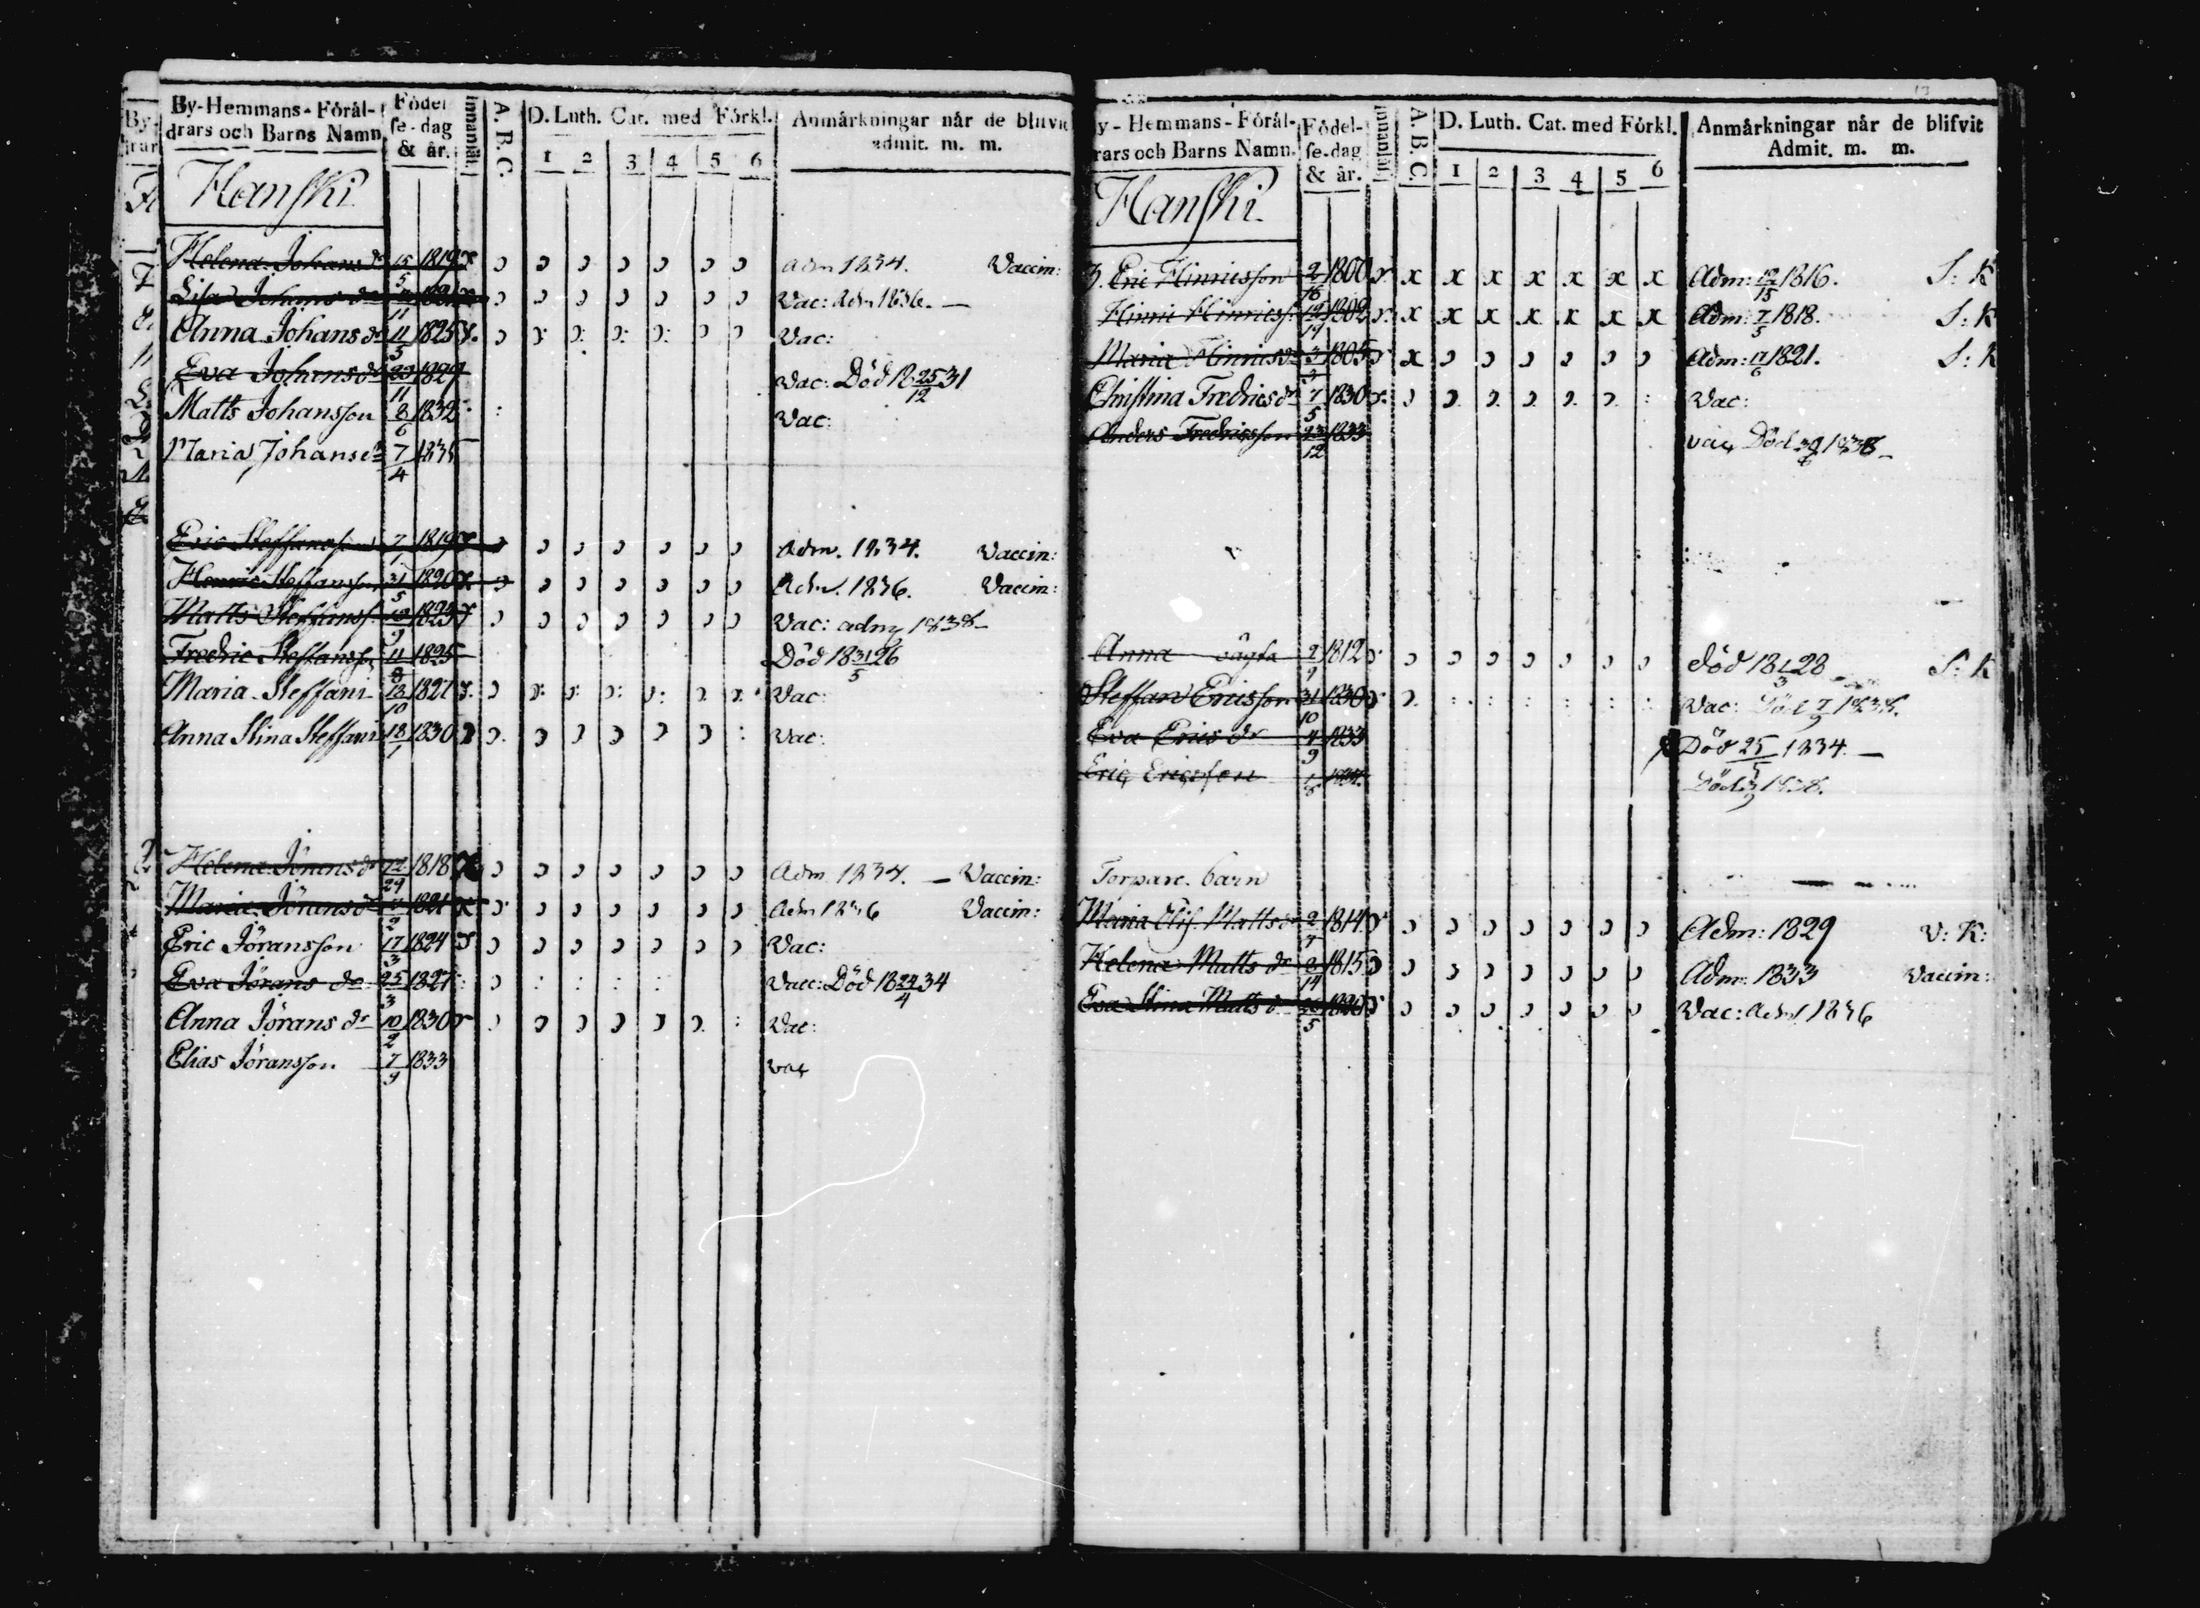 By-Hemmans-Förål-
drars och Barns Namn
Födel
se-dag
& år.
innanläs.
A. B. C.
D. Luth. Cat. med Förkl.
1 2 3 4 5 6
Anmärkningar når de blifvit
admit. m. m.
Hanski
Helena Johans dr 15/5 1819 x Adm 1834. Vaccin:
Lisa Johans dr Vac: Adm 1836.
Anna Johans dr 11/5 1825 Vac:
Eva Johans dr 23/11 1829 Vac: Död 18 25/12 31
Matts Johansson 8/6 1832 Vac:
Maria Johans dr 7/4 1835
Eric Steffansson 7/1 1819 x Adm. 1834. Vaccin:
Henric Steffansson 31/5 1820 x Adm. 1836. Vaccin:
Matts Steffanss. 1823 x Vac: adm 1838
Fredric Steffansson 11/8 1825 Död 18 31/5 26
Maria Steffans 13/10 1827 Vac:
Anna Stina Steffans 18/1 1830 Vac:
Helena Jörans dr 1818 x Adm 1834. Vaccin:
Maria Jörans dr 1821 x Adm 1836 Vaccin:
Eric Jöransson 17/3 1824 Vac:
Eva Jörans dr 25/3 1827 Vacc: Död 18 24/4 34
Anna Jörans dr 10/2 1830 Vac:
Elias Jöransson 7/9 1833 vac
y-Hemmans-Förål-
rars och Barns Namn.
Födel-
se-dag
& år.
innanläs.
A. B. C.
D. Luth. Cat. med Förkl.
1 2 3 4 5 6
Anmärkningar når de blifvit
Admit. m. m.
13
Hanski.
3. Eric Hinricsson 2/16 1800 x x x x x x x Adm: 1816. S: K
Hinric Hinricss. 1802 x x x x x x x Adm: 7/5 1818. S: K
Maria Hinrics dr 3/3 1805 x Adm: 17/6 1821. S: K
Christina Fredrics dr 7/5 1830 Vac:
Anders Fredricsson 23/12 1833 vac Död 1838
Anna 1812 död 18 1/3 28 S: K
Steffan Ericsson 31/10 1830 Vac: Död 1838.
Eva Erics dr 4/9 1833 Död 25/5 1834.
Eric Ericsson Död 1838.
Torpare barn
Maria Elis. Matts dr 1814 Adm: 1829 V: K:
Helena Matts dr 1815 Adm: 1833 Vaccin:
Eva Stina Matts dr 1820 Vac: Adm 1836